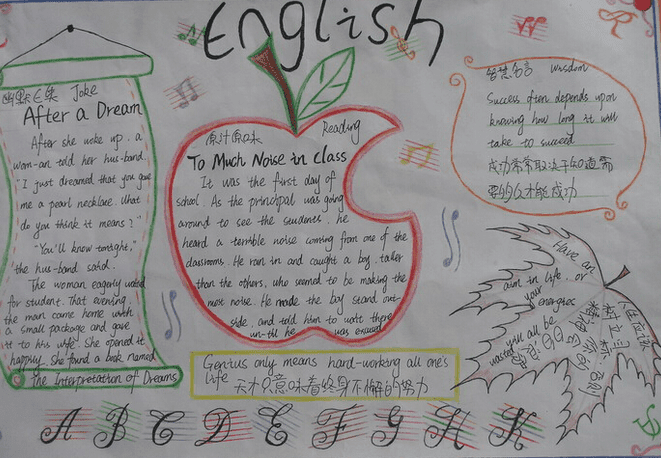 English
幽默 Joke
After a Dream
After she woke up, a
wom-an told her hus-band.
"I just dreamed that you gave
me a pearl necklace. What
do you think it means?"
"You'll know tonight,"
the hus-band said.
The woman eagerly
for student. That evening,
the man came home with
a small package and gave
it to his wife. She opened it
happily. She found a book named
the Interpretation of Dreams
原汁原味 Reading
To Much Noise in Class
It was the first day of
school. As the principal was going
around to see the students, he
heard a terrible noise coming from one of the
classrooms. He ran in and caught a boy, taller
than the others, who seemed to be making the
most noise. He made the boy stand out-
side, and told him to wait there
un-till he was excused
智慧名言 Wisdom
Success often depends upon
knowing how long it will
take to succeed
成功常常取决于知道需
要多久才能成功
Have an
aim in life, or
your energies
will all be
wasted
人生应该
树立目标
否则你的
精力会
白白
浪费
Genius only means hard-working all one's
life
天才只意味着终身不懈的努力
A B C D E F G H K